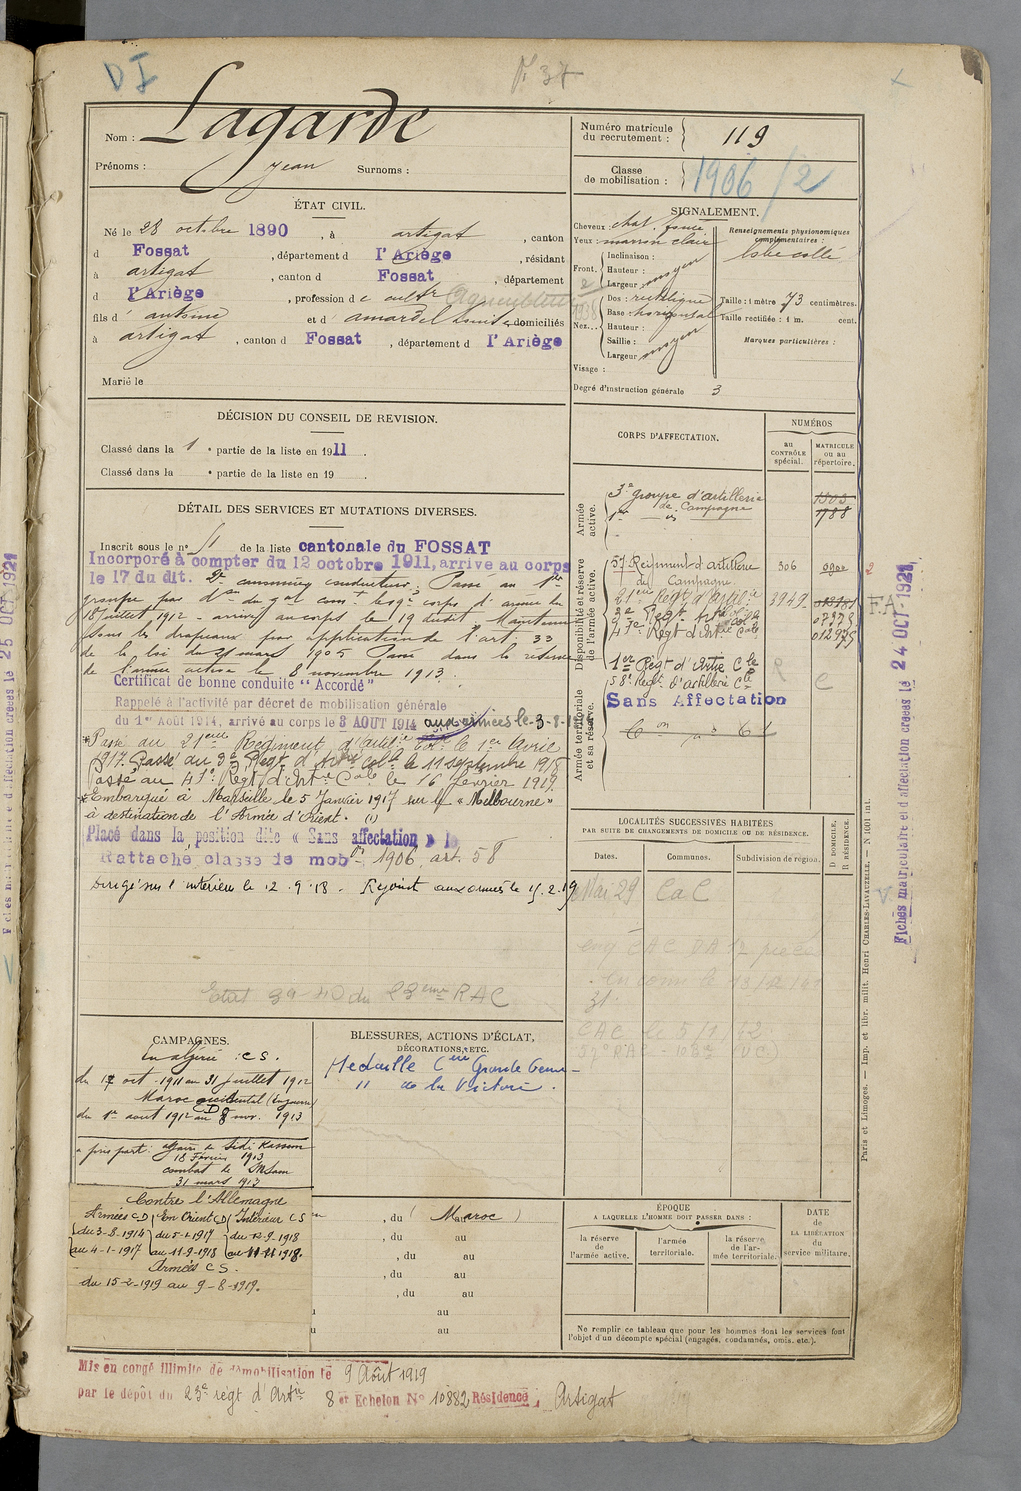 DI
37
Nom : Lagarde
Prénoms : Jean Surnoms :
Numéro matricule du recrutement : 119
Classe de mobilisation : 1906/2
ÉTAT CIVIL.
Né le 28 octobre 1890, à artigat, canton
d Fossat, département d l'Ariège, résidant
à artigat, canton d Fossat, département
d l'Ariège, profession de cultr
fils d' antoine et d' amardel domiciliés
à artigat, canton d Fossat, département d l'Ariège
Marié le
SIGNALEMENT.
Cheveux chat. foncé
Yeux marron clair
Front. Inclinaison :
Hauteur :
Largeur moyen
Nez. Dos : rectiligne
Base horizontal
Hauteur :
Saillie :
Largeur moyen
Visage :
Renseignements physionomiques complémentaires :
lobe collé
Taille : 1 mètre 73 centimètres.
Taille rectifiée : 1 m. cent.
Marques particulières :
Degré d'instruction générale 3
DÉCISION DU CONSEIL DE REVISION.
Classé dans la 1e partie de la liste en 1911.
Classé dans la e partie de la liste en 19 .
DÉTAIL DES SERVICES ET MUTATIONS DIVERSES.
Inscrit sous le n° 51 de la liste cantonale du FOSSAT
Incorporé à compter du 12 octobre 1911, arrivé au corps
le 17 du dit. 2e canonnier conducteur. Passé au 1er
groupe par don du gal comt le 19e corps d'armée du
18 juillet 1912 - arrivé au corps le 19 dudit. Maintenu
sous les drapeaux par application de l'art. 33
de la loi du 21 mars 1905 Passé dans la réserve
de l'armée active le 8 novembre 1913.
Certificat de bonne conduite "Accordé"
Rappelé à l'activité par décret de mobilisation générale
du 1er Août 1914, arrivé au corps le 3 AOUT 1914 aux armées le 3-8-14
Passé au 21eme Régiment d'Artie Cole le 1er Avril
1917. Passé du 3e Regt d'Artie Colle le 11 septembre 1918
Passé au 41e Régt d'Artie Cale le 16 février 1919.
Embarqué à Marseille le 5 Janvier 1917 sur le "Melbourne"
à destination de l'Armée d'Orient. (1)
Placé dans la position dite « Sans affectation »
Rattaché classe de mobon 1906 art. 58
Dirigé sur l'intérieur le 12.9.18 - Rejoint aux armées le 15.2.19
23eme RAC
CORPS D'AFFECTATION.
NUMÉROS
au CONTRÔLE spécial.
MATRICULE ou au répertoire.
Armée active.
3e groupe d'artillerie de Campagne 1903
1er 1788
Disponibilité et réserve de l'armée active.
57 Régiment d'artillerie de Campagne 306
21eme Regt d'Artie Cle 3949
3e Regt Artie Cola
41e Regt d'Artie Cale 012975
Armée territoriale et sa réserve.
1er Régt d'Artie Cle
58e Regt d'artillerie Cle
Sans Affectation
R
C
F.A
LOCALITÉS SUCCESSIVES HABITÉES
PAR SUITE DE CHANGEMENTS DE DOMICILE OU DE RÉSIDENCE.
Dates. Communes. Subdivision de région.
D DOMICILE, R RÉSIDENCE.
Mai 29 CaC
CAC le 5/1/32
CAMPAGNES.
En algérie : CS.
du 17 oct. 1911 au 31 juillet 1912
Maroc occidental (en guerre)
du 1er aout 1912 au 8 nov. 1913
a pris part : affaire de Sidi Kassem
18 Février 1913
combat de M Sam
31 mars 1913
Contre l'Allemagne
Armées CD En Orient CD Intérieur CS
du 3-8-1914 du 5-1-1917 du 12-9-1918
au 4-1-1917 au 11-9-1918 au 11-11-1918.
Armées CS.
du 15-2-1919 au 9-8-1919.
BLESSURES, ACTIONS D'ÉCLAT, DÉCORATIONS, ETC.
Médaille Cive Grande Guerre
" de la Victoire.
, du ( Maroc )
, du au
, du au
, du au
, du au
au
au
ÉPOQUE
A LAQUELLE L'HOMME DOIT PASSER DANS :
la réserve de l'armée active.
l'armée territoriale.
la réserve de l'armée territoriale.
DATE DE LA LIBÉRATION du service militaire.
Ne remplir ce tableau que pour les hommes dont les services font
l'objet d'un décompte spécial (engagés, condamnés, omis, etc.).
Mis en congé illimité de démobilisation le 9 Août 1919
par le dépôt du 23e régt d'Artie 8er Echelon N° 10882 Résidence, Artigat
Paris et Limoges. — Imp. et libr. milit. Henri CHARLES-LAVAUZELLE. — N° 1001 int.
Fiches matriculaire et d'affectation créées le 24 OCT. 1921